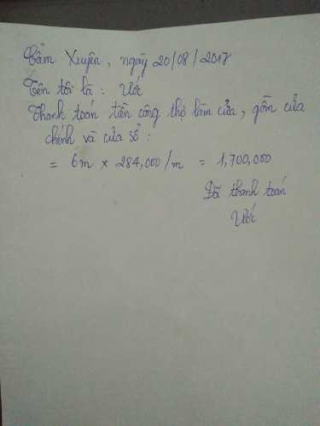 Cẩm Xuyên, ngày 20/08/2017
Tên tôi là : Ước
Thanh toán tiền công thợ làm cửa, gồm cửa
chính và cửa sổ :
= 6m × 284,000/m = 1,700,000
Đã thanh toán
Ước